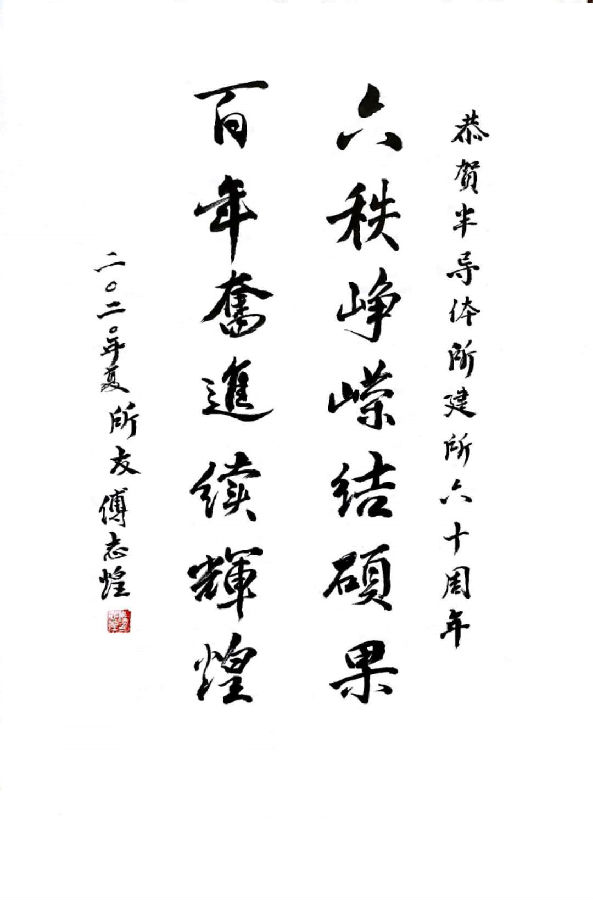 恭贺半导体所建所六十周年
六秩峥嵘结硕果
百年奮進续輝煌
二〇二〇年夏 所友 傅志煌